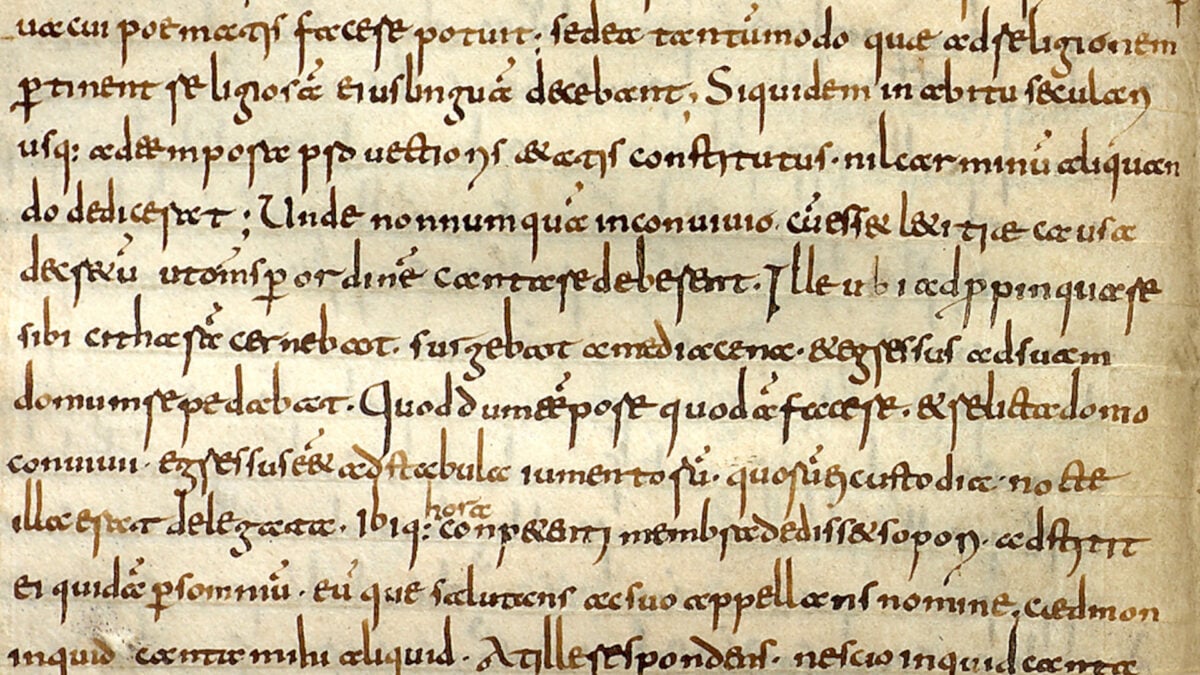 uacui poematis facere potuit; sed ea tantūmodo quæ ad religionem
ꝑtinent religiosā eius linguā decebant, Siquidem in abitu seculari
usq: ad tempora prouectioris &atis constitutus· nil carminū aliquan
do dedicerat; Unde nonnumquā in conuiuio· cū ess& l&itiæ causa
decretū ut om̄s ꝑ ordinē cantare deberent· Ille ubi adꝓpinquare
sibi citharā cernebat· surgebat a media cena· & egressus ad suam
domum repedabat· Quod dum tēpore quodā facere· & relicta domo
conuiuii· egressus eē& ad stabula iumentorū· quorū ei custodia· nocte
illa erat delegata· Ibiq: hora conp&enti membra dediss& sopori· adstitit
ei quidā ꝑ somniū· eūque salutans ac suo appellans nomine, caedmon
inquid canta mihi aliquid· At ille respondens· nescio inquid canta